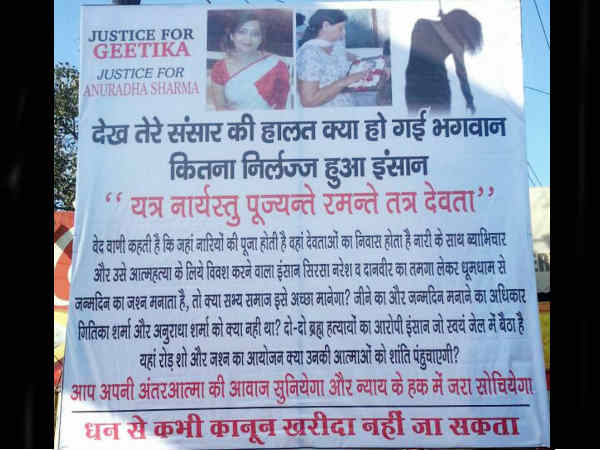 JUSTICE FOR
GEETIKA
JUSTICE FOR
ANURADHA SHARMA
देख तेरे संसार की हालत क्या हो गई भगवान
कितना निर्लज्ज हुआ इंसान
‘‘ यत्र नार्यस्तु पूज्यन्ते रमन्ते तत्र देवता’’
वेद वाणी कहती है कि जहां नारियों की पूजा होती है वहां देवताओं का निवास होता है नारी के साथ ब्याभिचार
और उसे आत्महत्या के लिये विवश करने वाला इंसान सिरसा नरेश व दानवीर का तमगा लेकर धूमधाम से
जन्मदिन का जश्न मनाता है, तो क्या सभ्य समाज इसे अच्छा मानेगा? जीने का और जन्मदिन मनाने का अधिकार
गितिका शर्मा और अनुराधा शर्मा को क्या नही था? दो-दो ब्रह्म हत्यायों का आरोपी इंसान जो स्वयं जेल में बैठा है
यहां रोड़ शो और जश्न का आयोजन क्या उनकी आत्माओं को शांति पंहुचाएगी?
आप अपनी अंतरआत्मा की आवाज सुनियेगा और न्याय के हक में जरा सोचियेगा
धन से कभी कानून खरीदा नहीं जा सकता